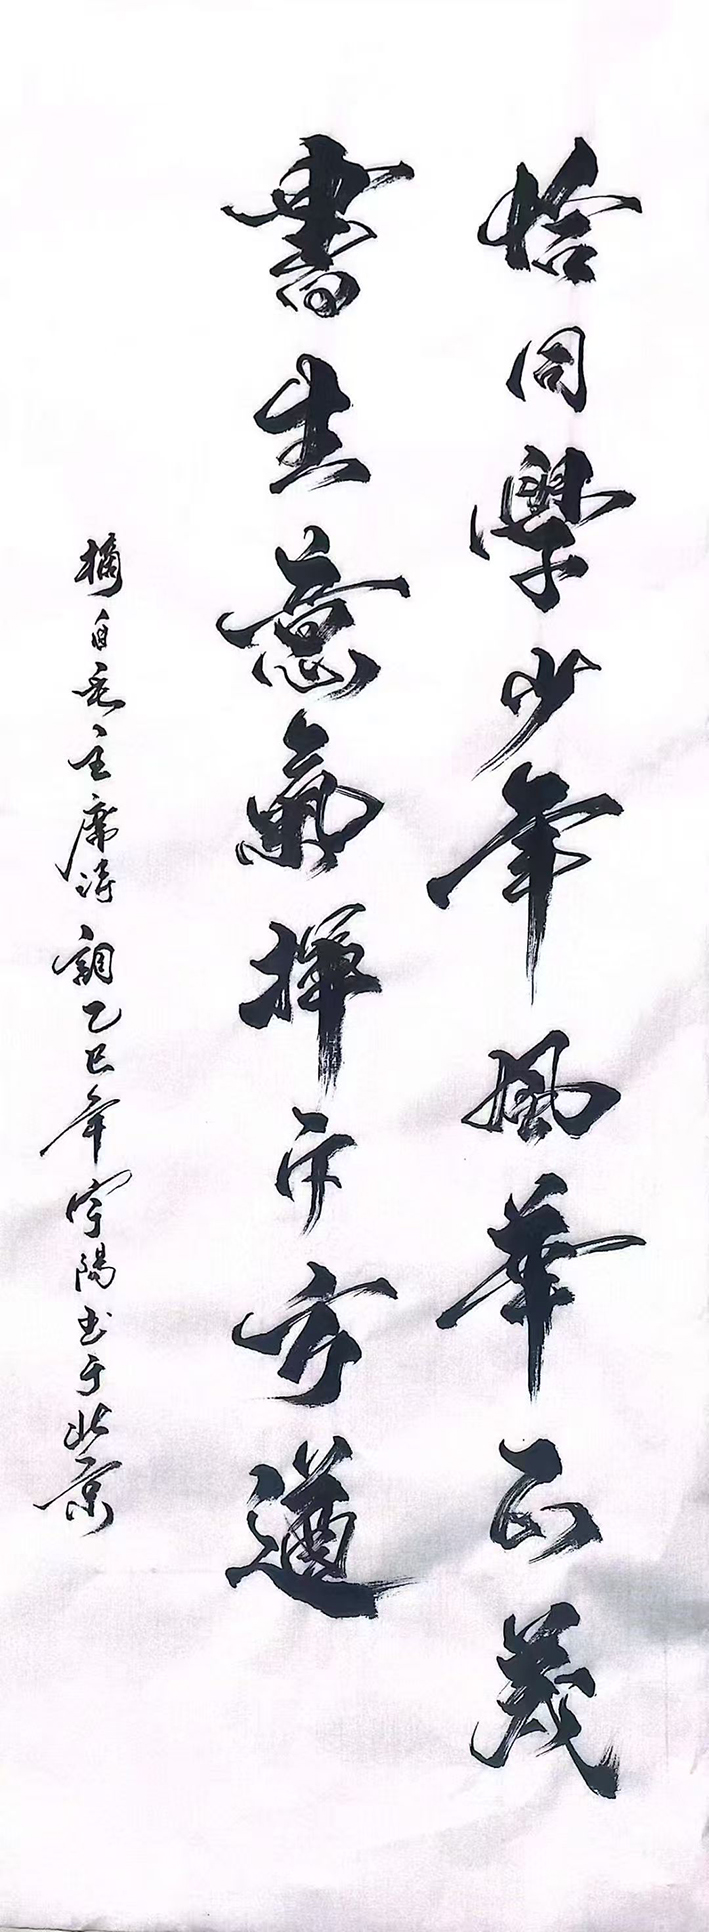 恰同學少年風華正茂
書生意氣揮斥方遒
摘自毛主席詩詞乙巳年宇陽書于北京